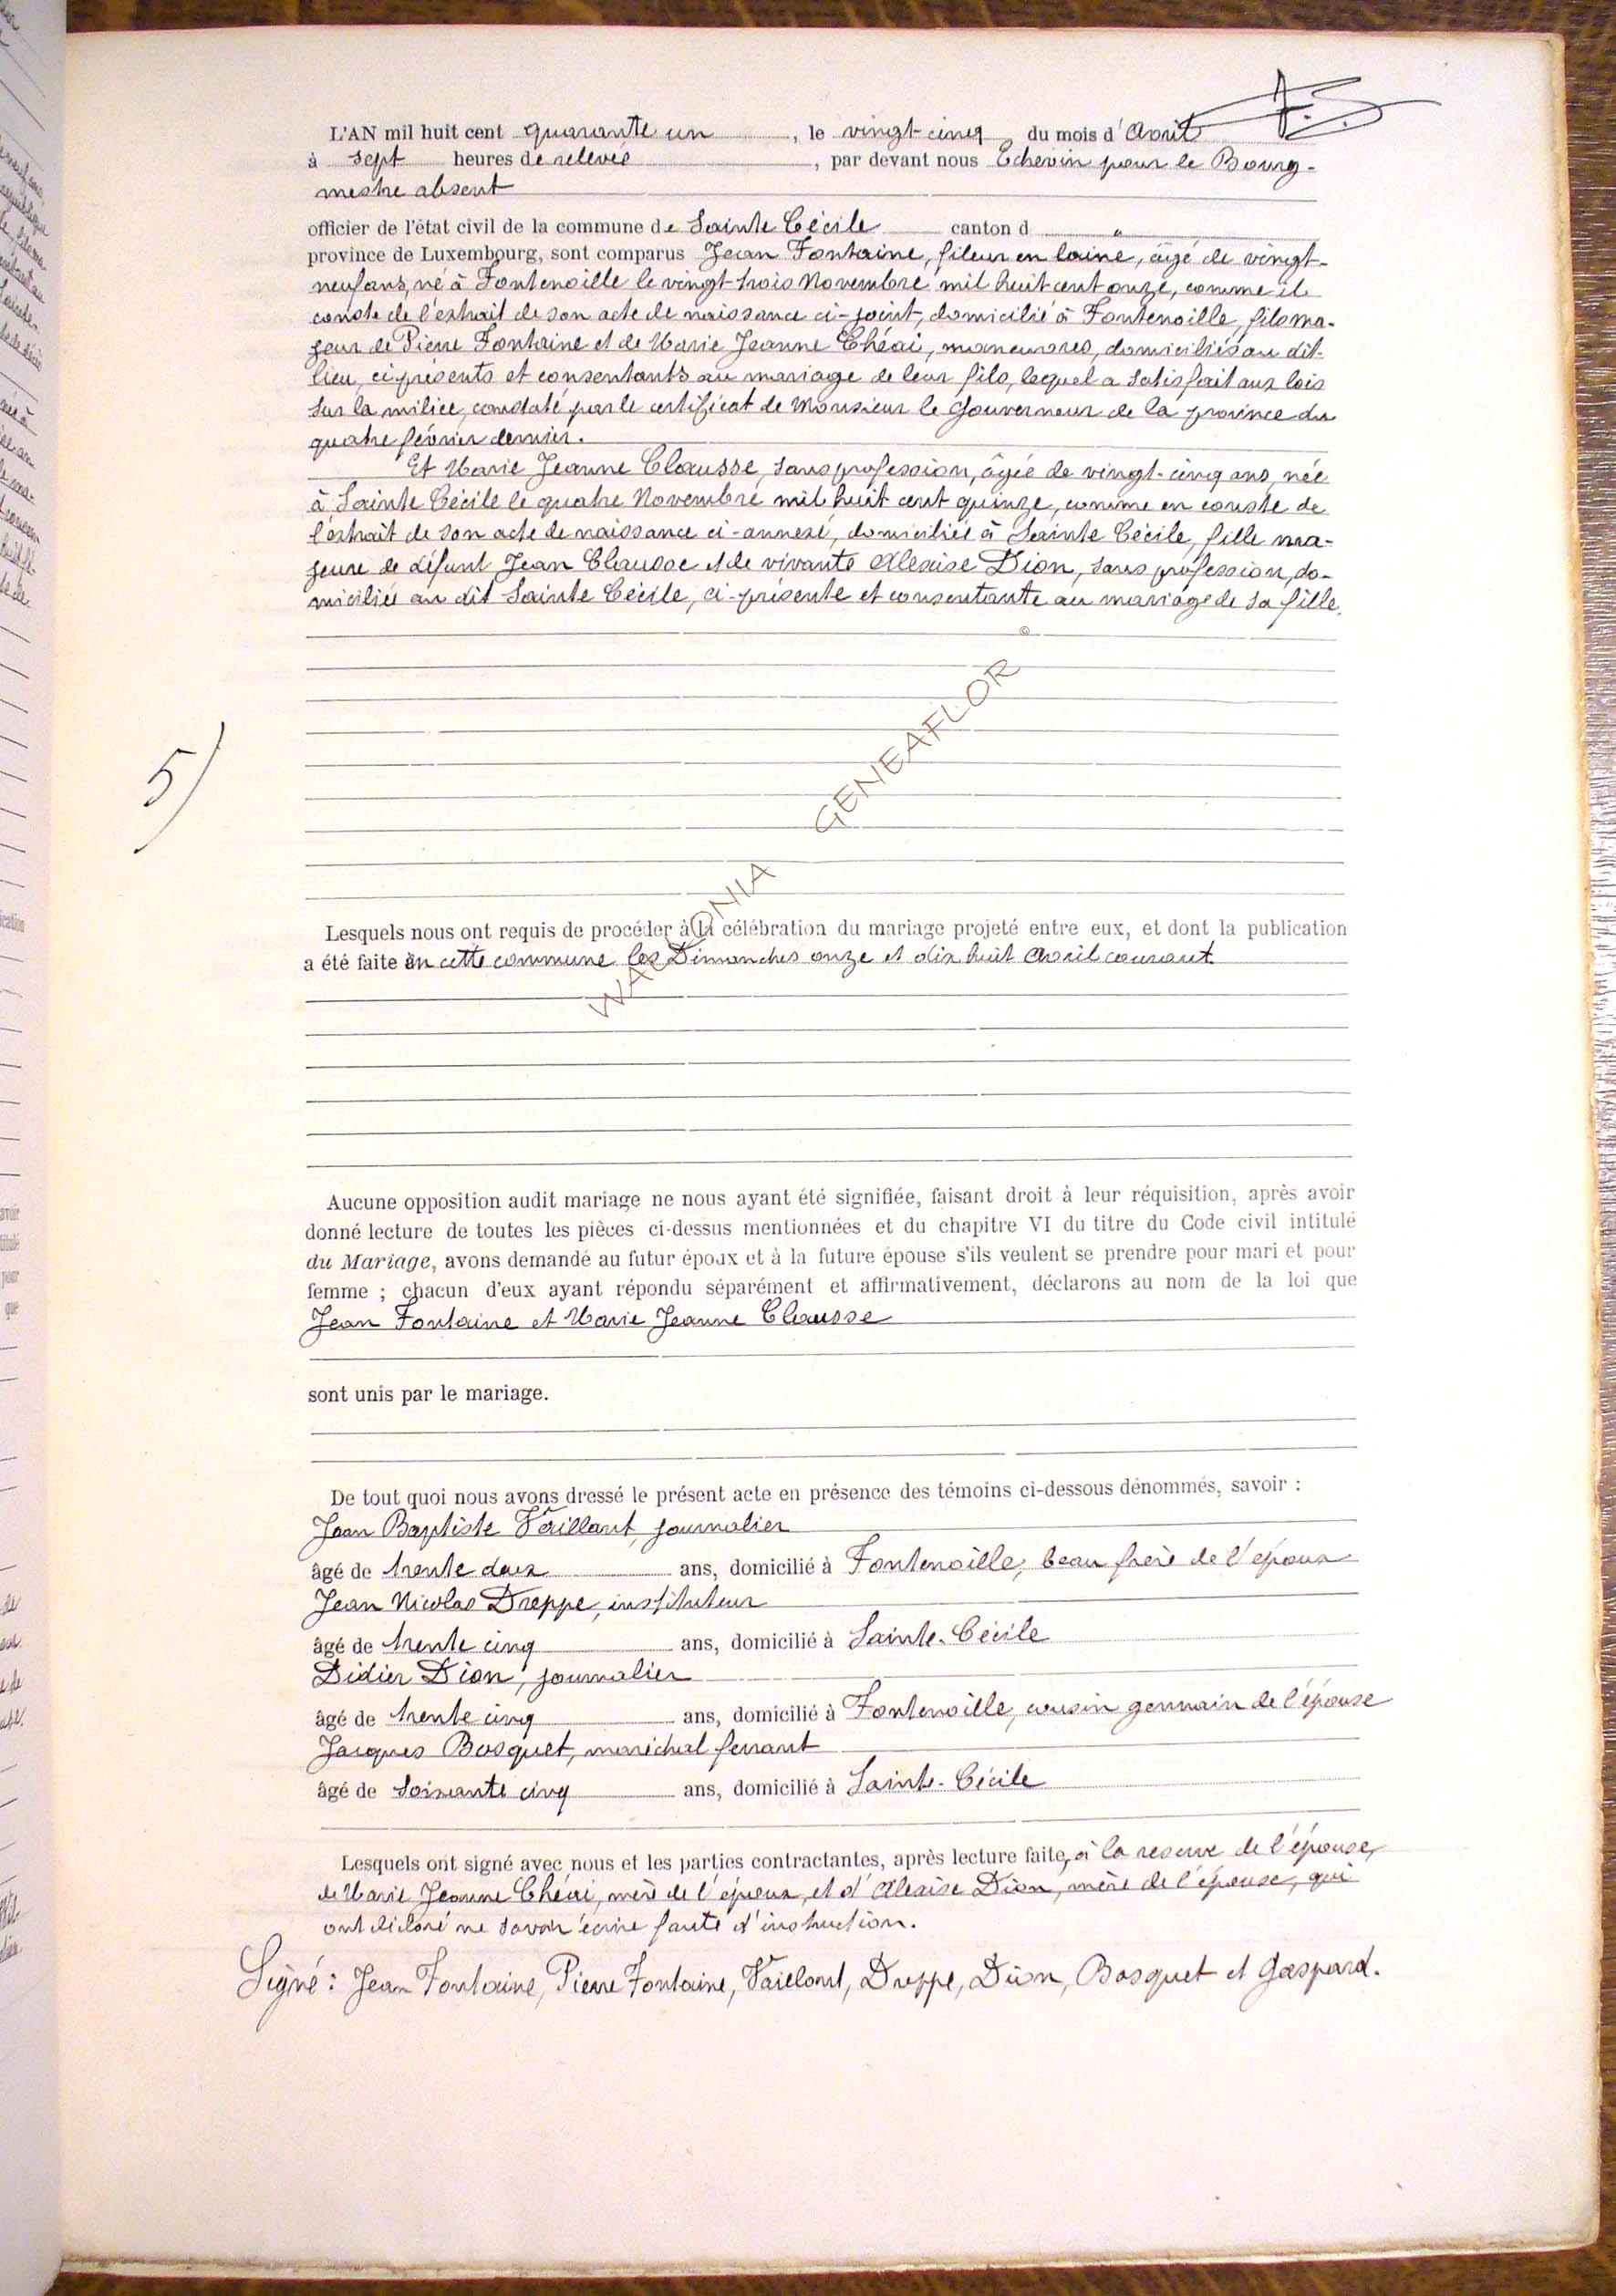 L'AN mil huit cent quarante un, le vingt-cinq du mois d'Avril
à sept heures de relevée, par devant nous Echevin pour le Bourg-
mestre absent
officier de l'état civil de la commune de Sainte Cécile canton d "
province de Luxembourg, sont comparus Jean Fontaine, fileur en laine, âgé de vingt-
neuf ans, né à Fontenoille le vingt trois Novembre mil huit cent onze, comme il
conste de l'extrait de son acte de naissance ci-joint, domicilié à Fontenoille, fils ma-
jeur de Pierre Fontaine et de Marie Jeanne Chéai, manœuvres, domiciliés au dit-
lieu, ci présents et consentants au mariage de leur fils, lequel a satisfait aux lois
sur la milice, constaté par le certificat de Monsieur le Gouverneur de la province du
quatre février dernier.
Et Marie Jeanne Clausse, sans profession, âgée de vingt-cinq ans, née
à Sainte Cécile le quatre Novembre mil huit cent quinze, comme en conste de
l'extrait de son acte de naissance ci-annexé, domiciliée à Sainte Cécile, fille ma-
jeure de défunt Jean Clausse et de vivante Alexise Dion, sans profession, do-
miciliée au dit Sainte Cécile, ci-présente et consentante au mariage de sa fille.
©
WALLONIA GENEAFLOR
5)
Lesquels nous ont requis de procéder à la célébration du mariage projeté entre eux, et dont la publication
a été faite en cette commune les Dimanches onze et dix huit Avril courant.
Aucune opposition audit mariage ne nous ayant été signifiée, faisant droit à leur réquisition, après avoir
donné lecture de toutes les pièces ci-dessus mentionnées et du chapitre VI du titre du Code civil intitulé
du Mariage, avons demandé au futur époux et à la future épouse s'ils veulent se prendre pour mari et pour
femme ; chacun d'eux ayant répondu séparément et affirmativement, déclarons au nom de la loi que
Jean Fontaine et Marie Jeanne Clausse
sont unis par le mariage.
De tout quoi nous avons dressé le présent acte en présence des témoins ci-dessous dénommés, savoir :
Jean Baptiste Vaillant, journalier
âgé de trente deux ans, domicilié à Fontenoille, beau frère de l'époux
Jean Nicolas Dreppe, instituteur
âgé de trente cinq ans, domicilié à Sainte-Cécile
Didier Dion, journalier
âgé de trente cinq ans, domicilié à Fontenoille, cousin germain de l'épouse
Jacques Bosquet, maréchal ferrant
âgé de soixante cinq ans, domicilié à Sainte-Cécile
Lesquels ont signé avec nous et les parties contractantes, après lecture faite, à la reserve de l'épouse,
de Marie Jeanne Chéai, mère de l'époux, et d'Alexise Dion, mère de l'épouse, qui
ont déclaré ne savoir écrire faute d'instruction.
Signé : Jean Fontaine, Pierre Fontaine, Vaillant, Dreppe, Dion, Bosquet et Gaspard.